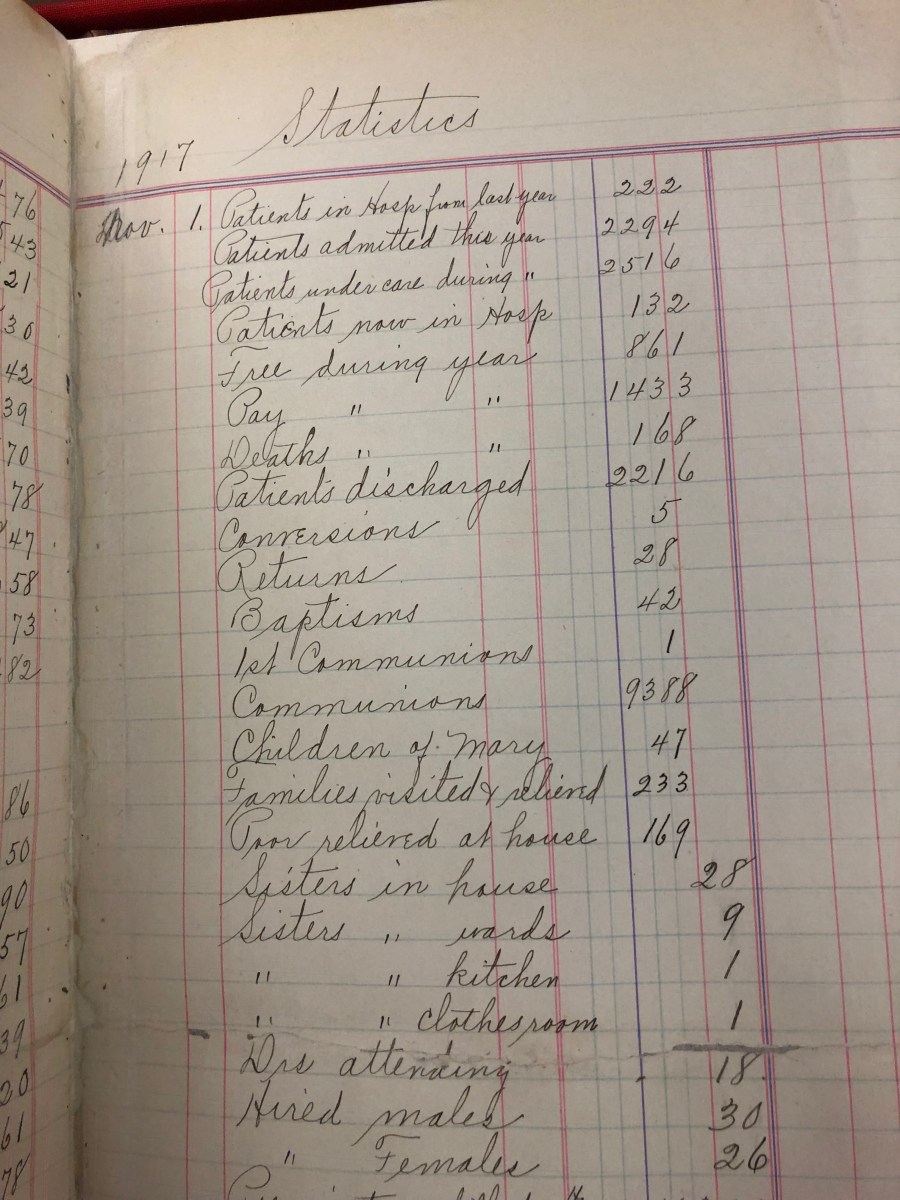 Statistics
1917
Nov. 1. Patients in Hosp from last year 222
Patients admitted this year 2294
Patients under care during " 2516
Patients now in Hosp 132
Free during year 861
Pay " " 1433
Deaths " " 168
Patients discharged 2216
Conversions 5
Returns 28
Baptisms 42
1st Communions 1
Communions 9388
Children of Mary 47
Families visited & relieved 233
Poor relieved at house 169
Sisters in house 28
Sisters " wards 9
" " kitchen 1
" " clothesroom 1
Drs attending 18
Hired males 30
" Females 26
76
43
21
30
42
39
70
78
47
58
73
82
86
50
90
57
61
39
20
61
78